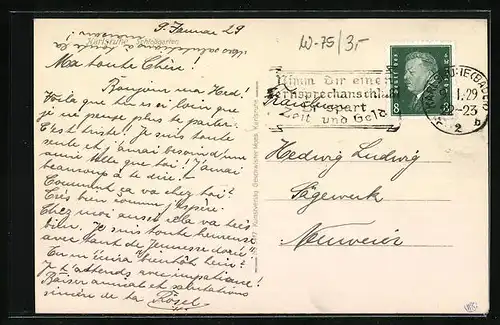 9. Januar 29
Karlsruhe Schloßgarten
Ma toute Chère!
Bonjour ma Hed!
Voilà que tu es si loin que
je ne pense plus te parler.
C'est triste! Je suis toute
seule et j'amai besoind une
amie telle que toi! J'amai
beaucoup à te dire!
Comment ça va chez toi?
Très bien comme j'espère.
Chez moi aussi ela va très
bien. Je suis toute heureuse
avec tant de Jeunesse dorée"
Tu m'écriras bientôt hein?
Je t'attends avec impatience!
Baiser amical et salutations
sincère de ta Rösel
W-75/3,-
Nimm dir einen
Fernsprechanschluß
Er spart
Zeit und Geld
Deutsches Reich
8 8
KARLSRUHE (BADEN)
1.29
2-23
2 b
Hedwig Ludwig
Sägewerk
Neuweier